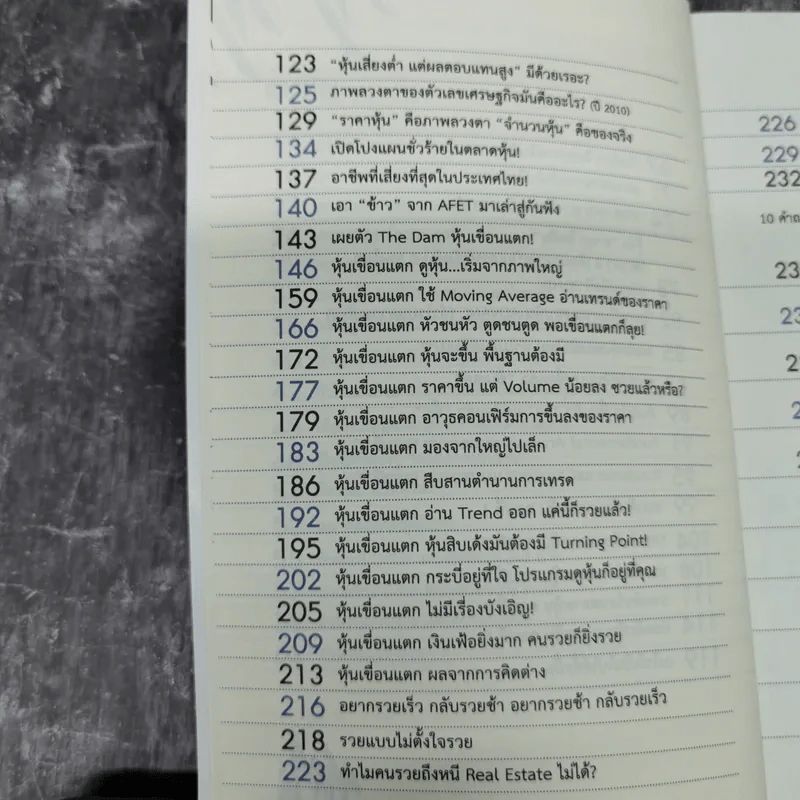 123 "หุ้นเสี่ยงต่ำ แต่ผลตอบแทนสูง" มีด้วยเรอะ?
125 ภาพลวงตาของตัวเลขเศรษฐกิจมันคืออะไร? (ปี 2010)
129 "ราคาหุ้น" คือภาพลวงตา "จำนวนหุ้น" คือของจริง
134 เปิดโปงแผนชั่วร้ายในตลาดหุ้น!
137 อาชีพที่เสี่ยงที่สุดในประเทศไทย!
140 เอา "ข้าว" จาก AFET มาเล่าสู่กันฟัง
143 เผยตัว The Dam หุ้นเขื่อนแตก!
146 หุ้นเขื่อนแตก ดูหุ้น...เริ่มจากภาพใหญ่
159 หุ้นเขื่อนแตก ใช้ Moving Average อ่านเทรนด์ของราคา
166 หุ้นเขื่อนแตก หัวชนหัว ตูดชนตูด พอเขื่อนแตกก็ลุย!
172 หุ้นเขื่อนแตก หุ้นจะขึ้น พื้นฐานต้องมี
177 หุ้นเขื่อนแตก ราคาขึ้น แต่ Volume น้อยลง ซวยแล้วหรือ?
179 หุ้นเขื่อนแตก อาวุธคอนเฟิร์มการขึ้นลงของราคา
183 หุ้นเขื่อนแตก มองจากใหญ่ไปเล็ก
186 หุ้นเขื่อนแตก สืบสานตำนานการเทรด
192 หุ้นเขื่อนแตก อ่าน Trend ออก แค่นี้ก็รวยแล้ว!
195 หุ้นเขื่อนแตก หุ้นสิบเด้งมันต้องมี Turning Point!
202 หุ้นเขื่อนแตก กระบี่อยู่ที่ใจ โปรแกรมดูหุ้นก็อยู่ที่คุณ
205 หุ้นเขื่อนแตก ไม่มีเรื่องบังเอิญ!
209 หุ้นเขื่อนแตก เงินเฟ้อยิ่งมาก คนรวยก็ยิ่งรวย
213 หุ้นเขื่อนแตก ผลจากการคิดต่าง
216 อยากรวยเร็ว กลับรวยช้า อยากรวยช้า กลับรวยเร็ว
218 รวยแบบไม่ตั้งใจรวย
223 ทำไมคนรวยถึงหนี Real Estate ไม่ได้?
226
229
232
10